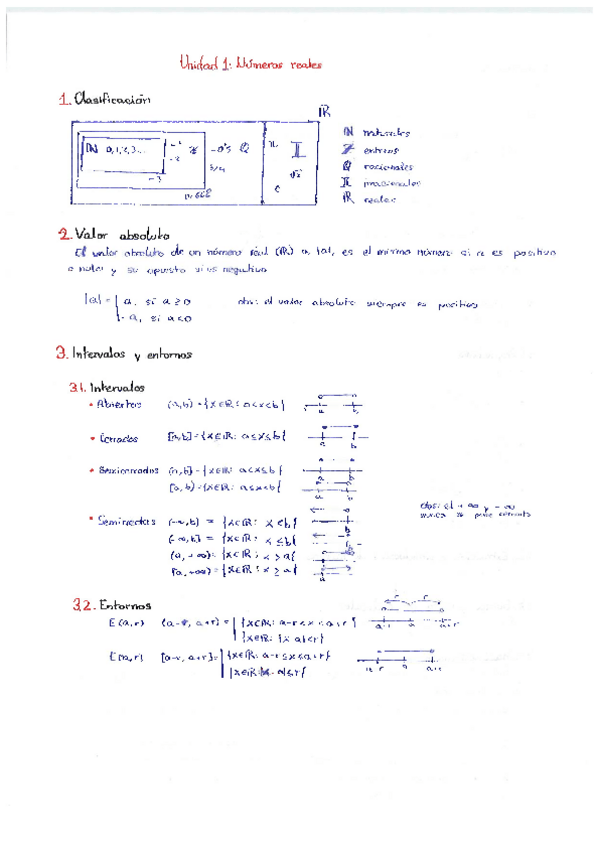 Unidad 1: Números reales
1. Clasificación
ℝ
ℕ 0,1,2,3... -1 ℤ -0'5 ℚ π 𝕀
-2 3/4 √2
-3 e
ℕ naturales
ℤ enteros
ℚ racionales
𝕀 irracionales
ℝ reales
2. Valor absoluto
El valor absoluto de un número real (ℝ) a, |a|, es el mismo número si a es positivo
o nulo y su opuesto si es negativo
|a| = { a, si a ≥ 0
-a, si a < 0
obs: el valor absoluto siempre es positivo
3. Intervalos y entornos
3.1. Intervalos
• Abiertos (a,b) = {x∈ℝ: a<x<b}
• Cerrados [a,b] = {x∈ℝ: a≤x≤b}
• Semicerrados (a,b] = {x∈ℝ: a<x≤b}
[a,b) = {x∈ℝ: a≤x<b}
• Semirrectas (-∞,b) = {x∈ℝ: x<b}
(-∞,b] = {x∈ℝ: x≤b}
(a,+∞) = {x∈ℝ: x>a}
[a,+∞) = {x∈ℝ: x≥a}
obs: el +∞ y -∞
nunca se pone cerrado
3.2. Entornos
E(a,r) (a-r, a+r) = | {x∈ℝ: a-r<x<a+r}
{x∈ℝ: |x-a|<r}
r r
a-r a a+r
E[a,r] [a-r, a+r] = | {x∈ℝ: a-r≤x≤a+r}
{x∈ℝ: |x-a|≤r}
a-r a a+r